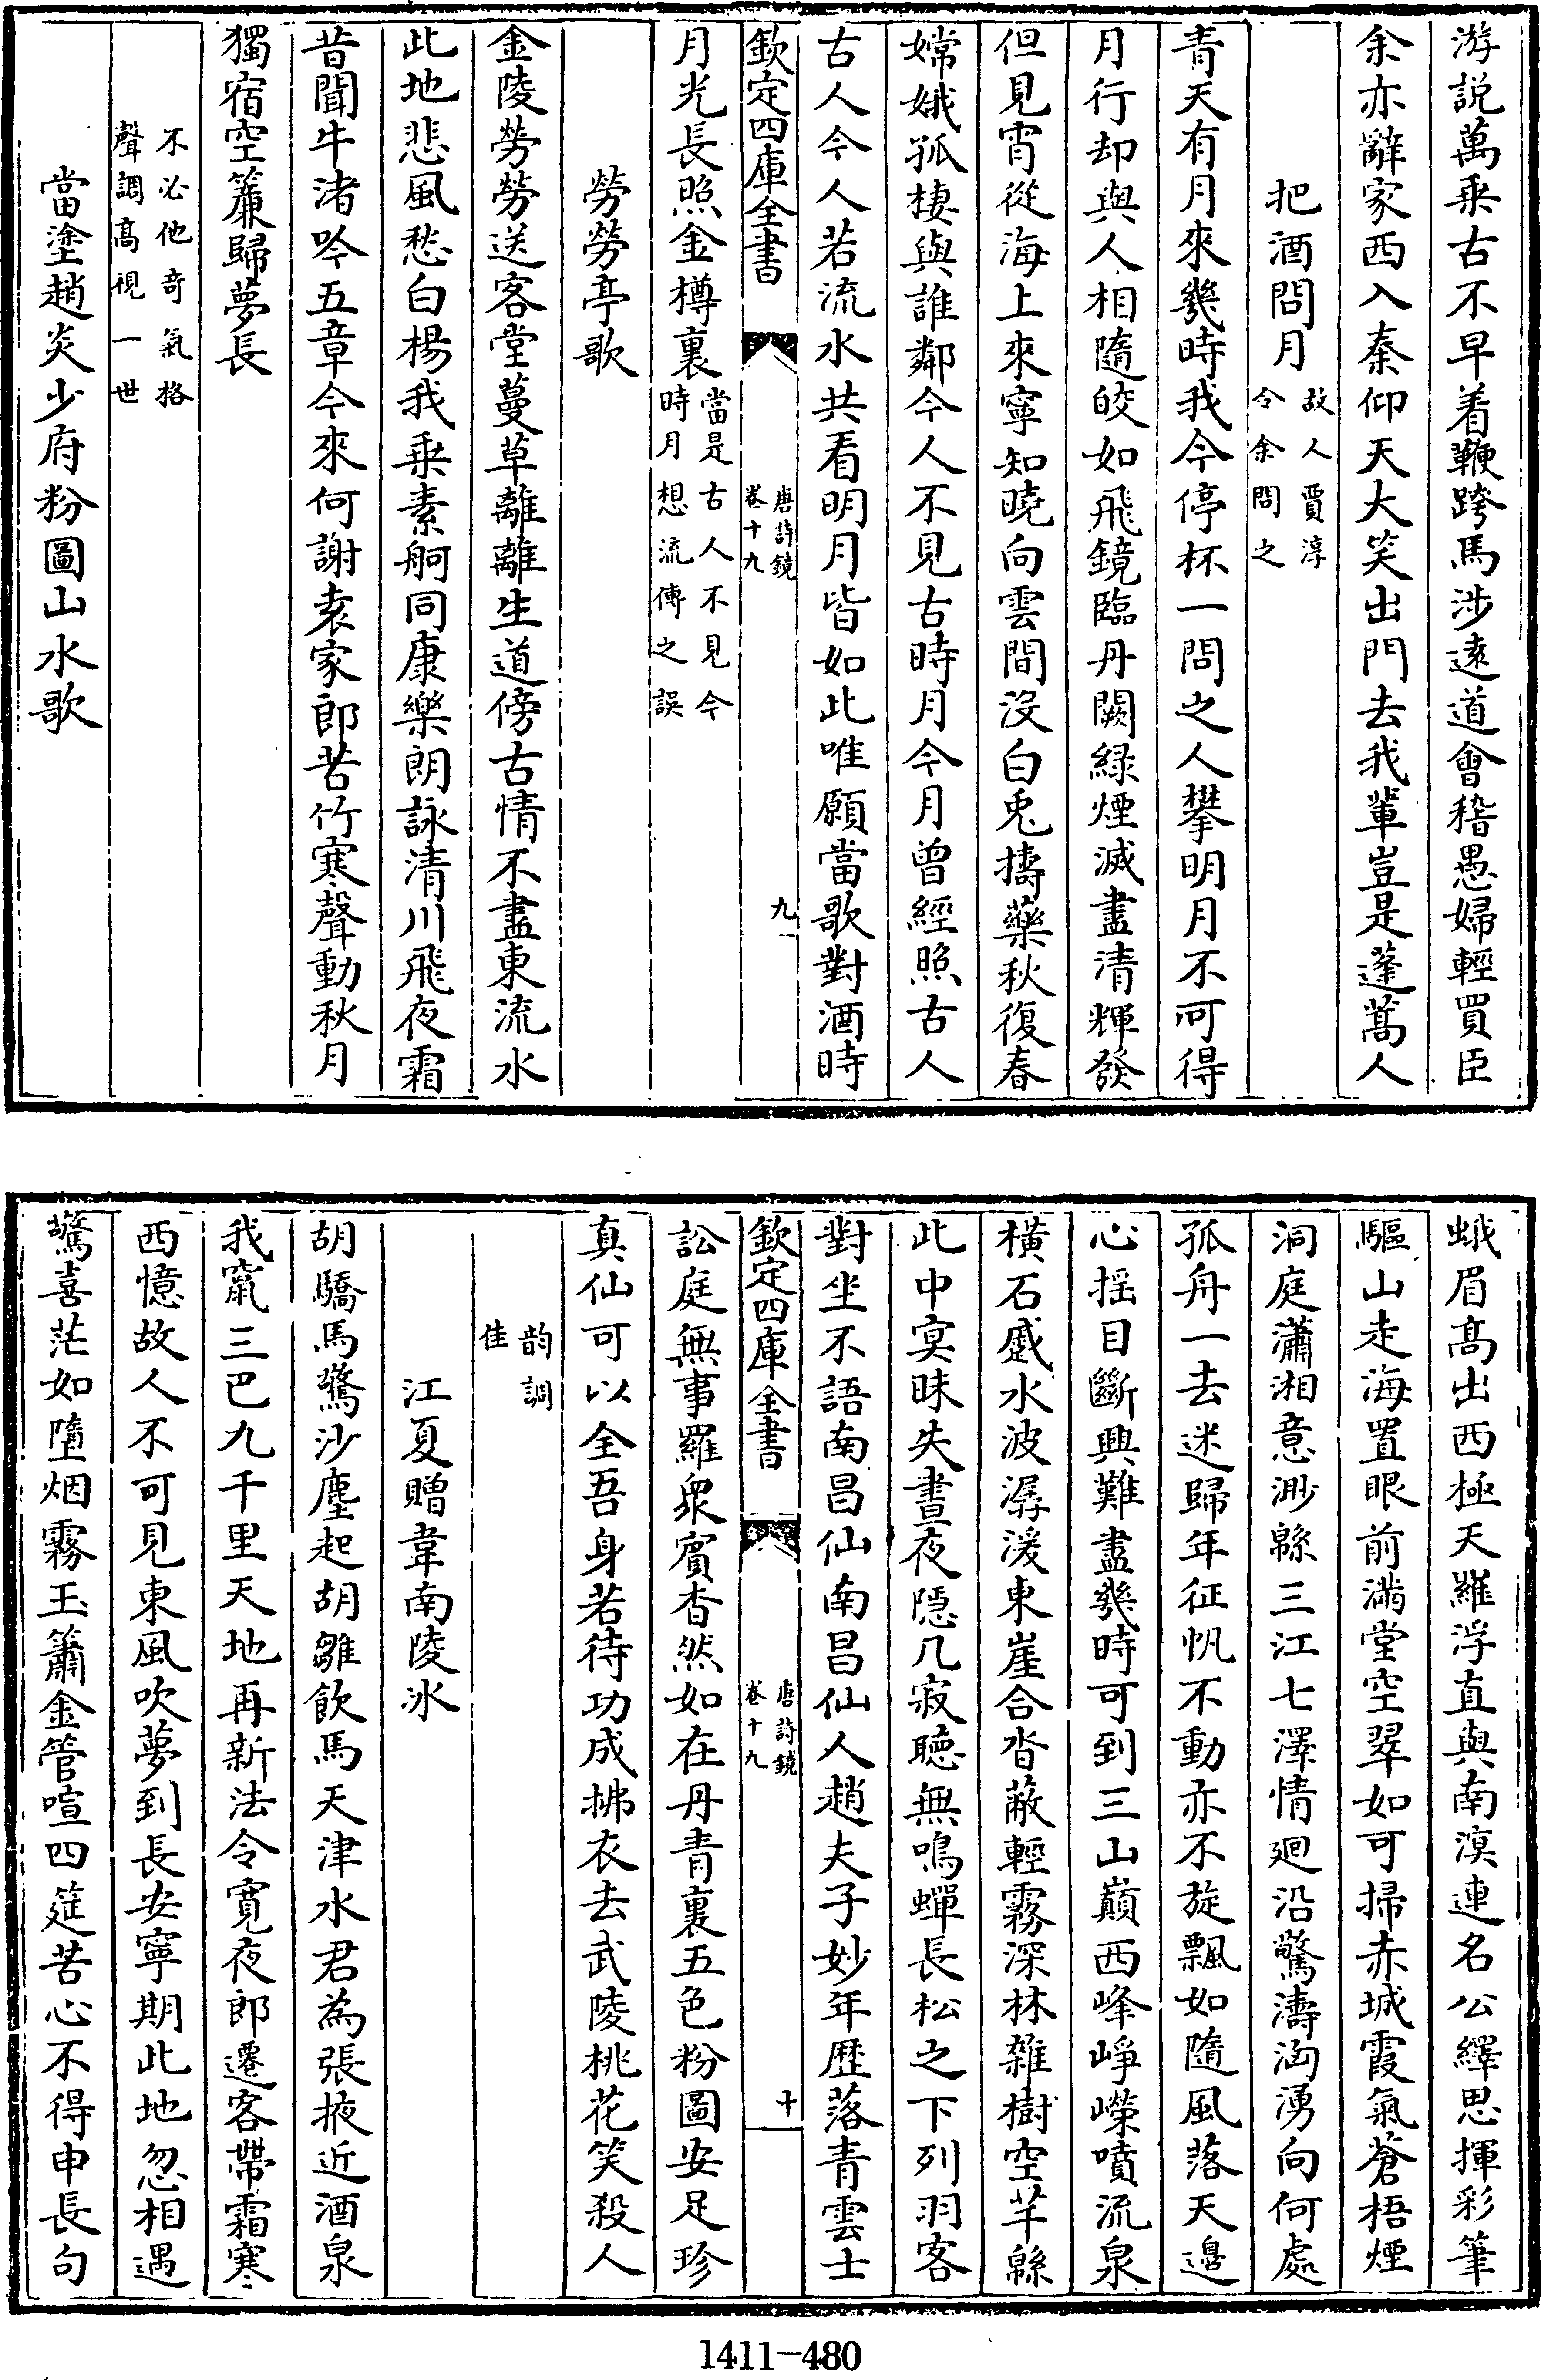 游説萬乗古不早着鞭跨馬涉遠道會稽愚婦輕買臣
余亦辭家西入秦仰天大笑出門去我輩豈是蓬蒿人
把酒問月故人賈淳
令余問之
青天有月來幾時我今停杯一問之人攀明月不可得
月行却與人相隨皎如飛鏡臨丹闕緑煙滅盡清輝發
但見宵從海上來寧知曉向雲間沒白兎擣藥秋復春
嫦娥孤棲與誰鄰今人不見古時月今月曾經照古人
古人今人若流水共看明月皆如此唯願當歌對酒時
欽定四庫全書
唐詩鏡
卷十九
九
月光長照金樽裏當是古人不見今
時月想流傳之誤
勞勞亭歌
金陵勞勞送客堂蔓草離離生道傍古情不盡東流水
此地悲風愁白楊我乗素舸同康樂朗詠清川飛夜霜
昔聞牛渚吟五章今來何謝袁家郎苦竹寒聲動秋月
獨宿空簾歸夢長
不必他奇氣格
聲調高視一世
當塗趙炎少府粉圖山水歌
蛾眉高出西極天羅浮直與南溟連名公繹思揮彩筆
驅山走海置眼前滿堂空翠如可掃赤城霞氣蒼梧煙
洞庭瀟湘意渺緜三江七澤情廻沿驚濤洶湧向何處
孤舟一去迷歸年征帆不動亦不旋飄如隨風落天邉
心揺目斷興難盡幾時可到三山巔西峰崢嶸噴流泉
横石蹙水波潺湲東崖合沓蔽輕霧深林雜樹空芊緜
此中㝠昧失晝夜隠几寂聴無鳴蟬長松之下列羽客
對坐不語南昌仙南昌仙人趙夫子妙年歴落青雲士
欽定四庫全書
唐詩鏡
卷十九
十
訟庭無事羅衆賓杳然如在丹青裏五色粉圖安足珍
真仙可以全吾身若待功成拂衣去武陵桃花笑殺人
韵調
佳
江夏贈韋南陵冰
胡驕馬驚沙塵起胡雛飲馬天津水君為張掖近酒泉
我竄三巴九千里天地再新法令寛夜郎遷客帶霜寒
西憶故人不可見東風吹夢到長安寧期此地忽相遇
驚喜茫如墮烟霧玉簫金管喧四筵苦心不得申長句
1411-480